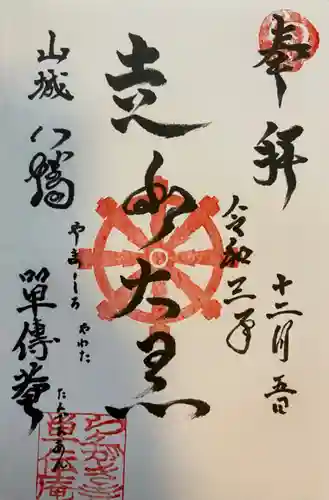 奉拝
令和三年
十二月五日
走り大黒
山城
八幡
やましろ
やわた
單傳菴
たんでんあん
らくがき寺
単伝庵